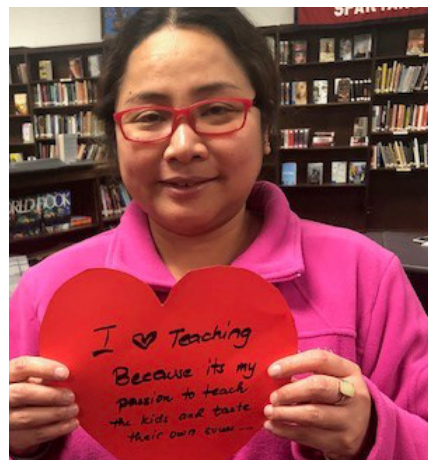 SPARTANS
WORLD BOOK
I ♥ Teaching
Because its my
passion to teach
the kids and taste
their own